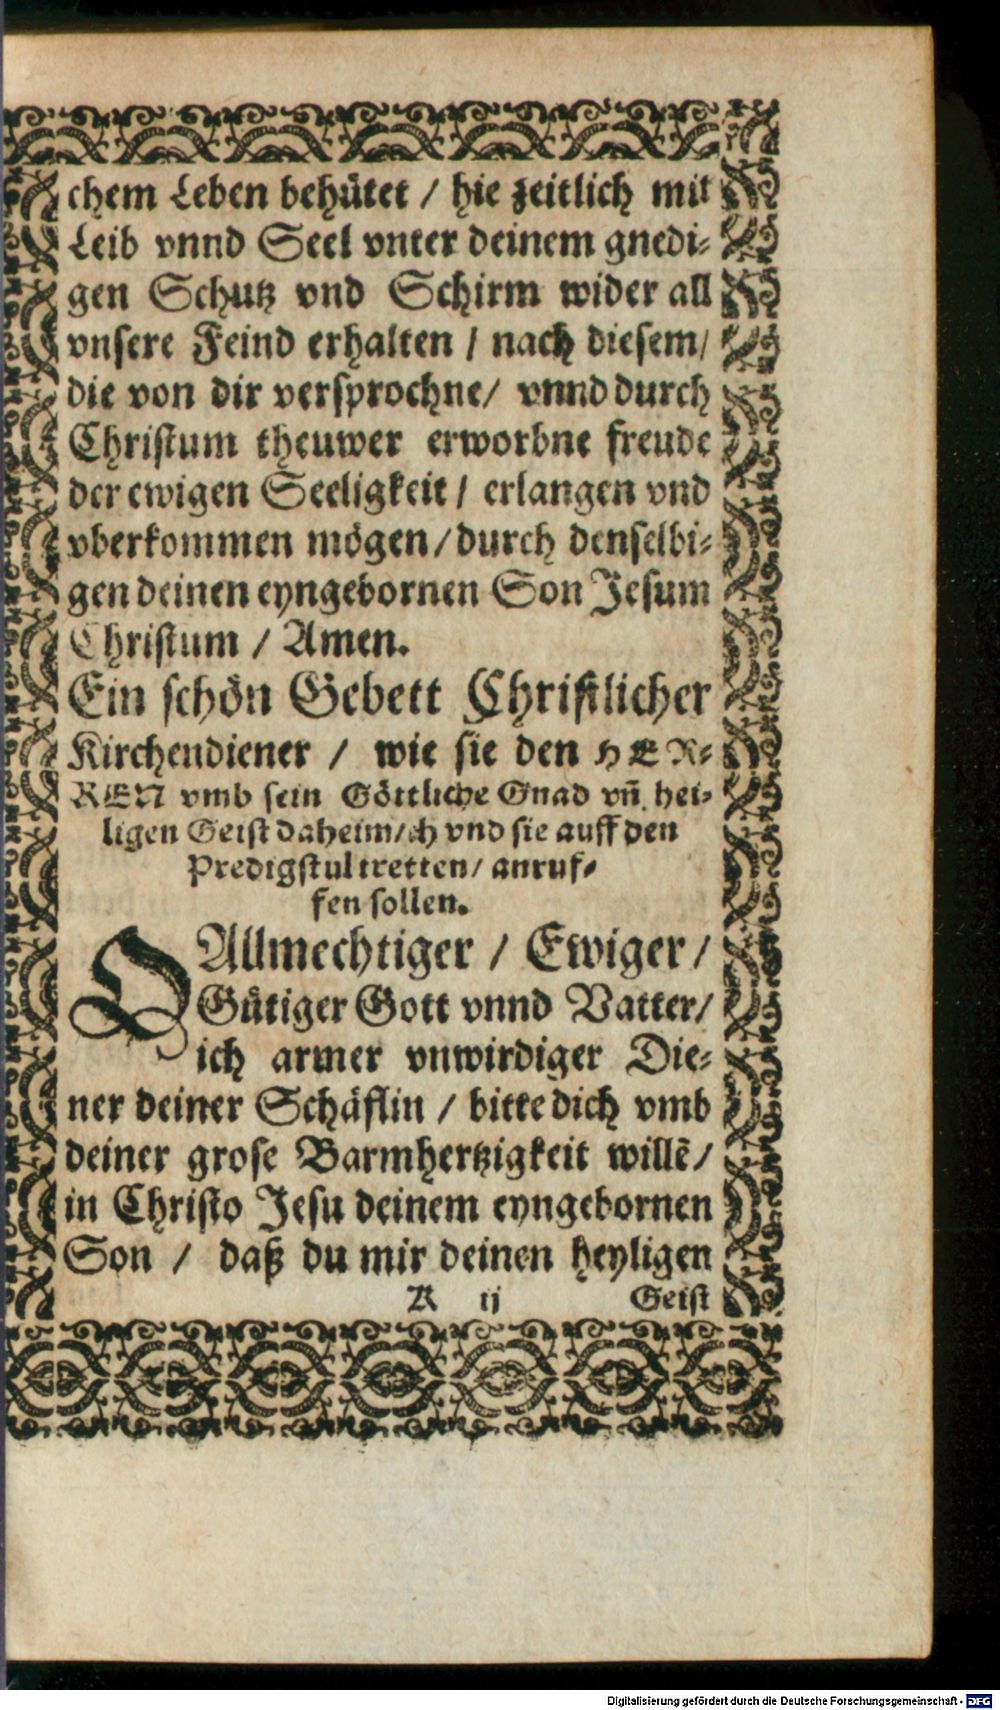 chem Leben behütet / hie zeitlich mit
Leib vnnd Seel vnter deinem gnedi⸗
gen Schutz vnd Schirm wider all
vnsere Feind erhalten / nach diesem/
die von dir versprochne/ vnnd durch
Christum theuwer erworbne freude
der ewigen Seeligkeit / erlangen vnd
vberkommen mögen/durch denselbi⸗
gen deinen eyngebornen Son Jesum
Christum / Amen.
Ein schön Gebett Christlicher
Kirchendiener / wie sie den HER⸗
REN vmb sein Göttliche Gnad vñ hei⸗
ligen Geist daheim/eh vnd sie auff den
Predigstul tretten/ anruf⸗
fen sollen.
O Allmechtiger / Ewiger /
Gütiger Gott vnnd Vatter/
ich armer vnwirdiger Die⸗
ner deiner Schäflin / bitte dich vmb
deiner grose Barmhertzigkeit willẽ/
in Christo Jesu deinem eyngebornen
Son / daß du mir deinen heyligen
A ij Geist
Digitalisierung gefördert durch die Deutsche Forschungsgemeinschaft - DFG